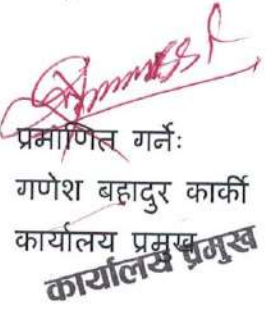 प्रमाणित गर्नेः
गणेश बहादुर कार्की
कार्यालय प्रमुख
कार्यालय प्रमुख